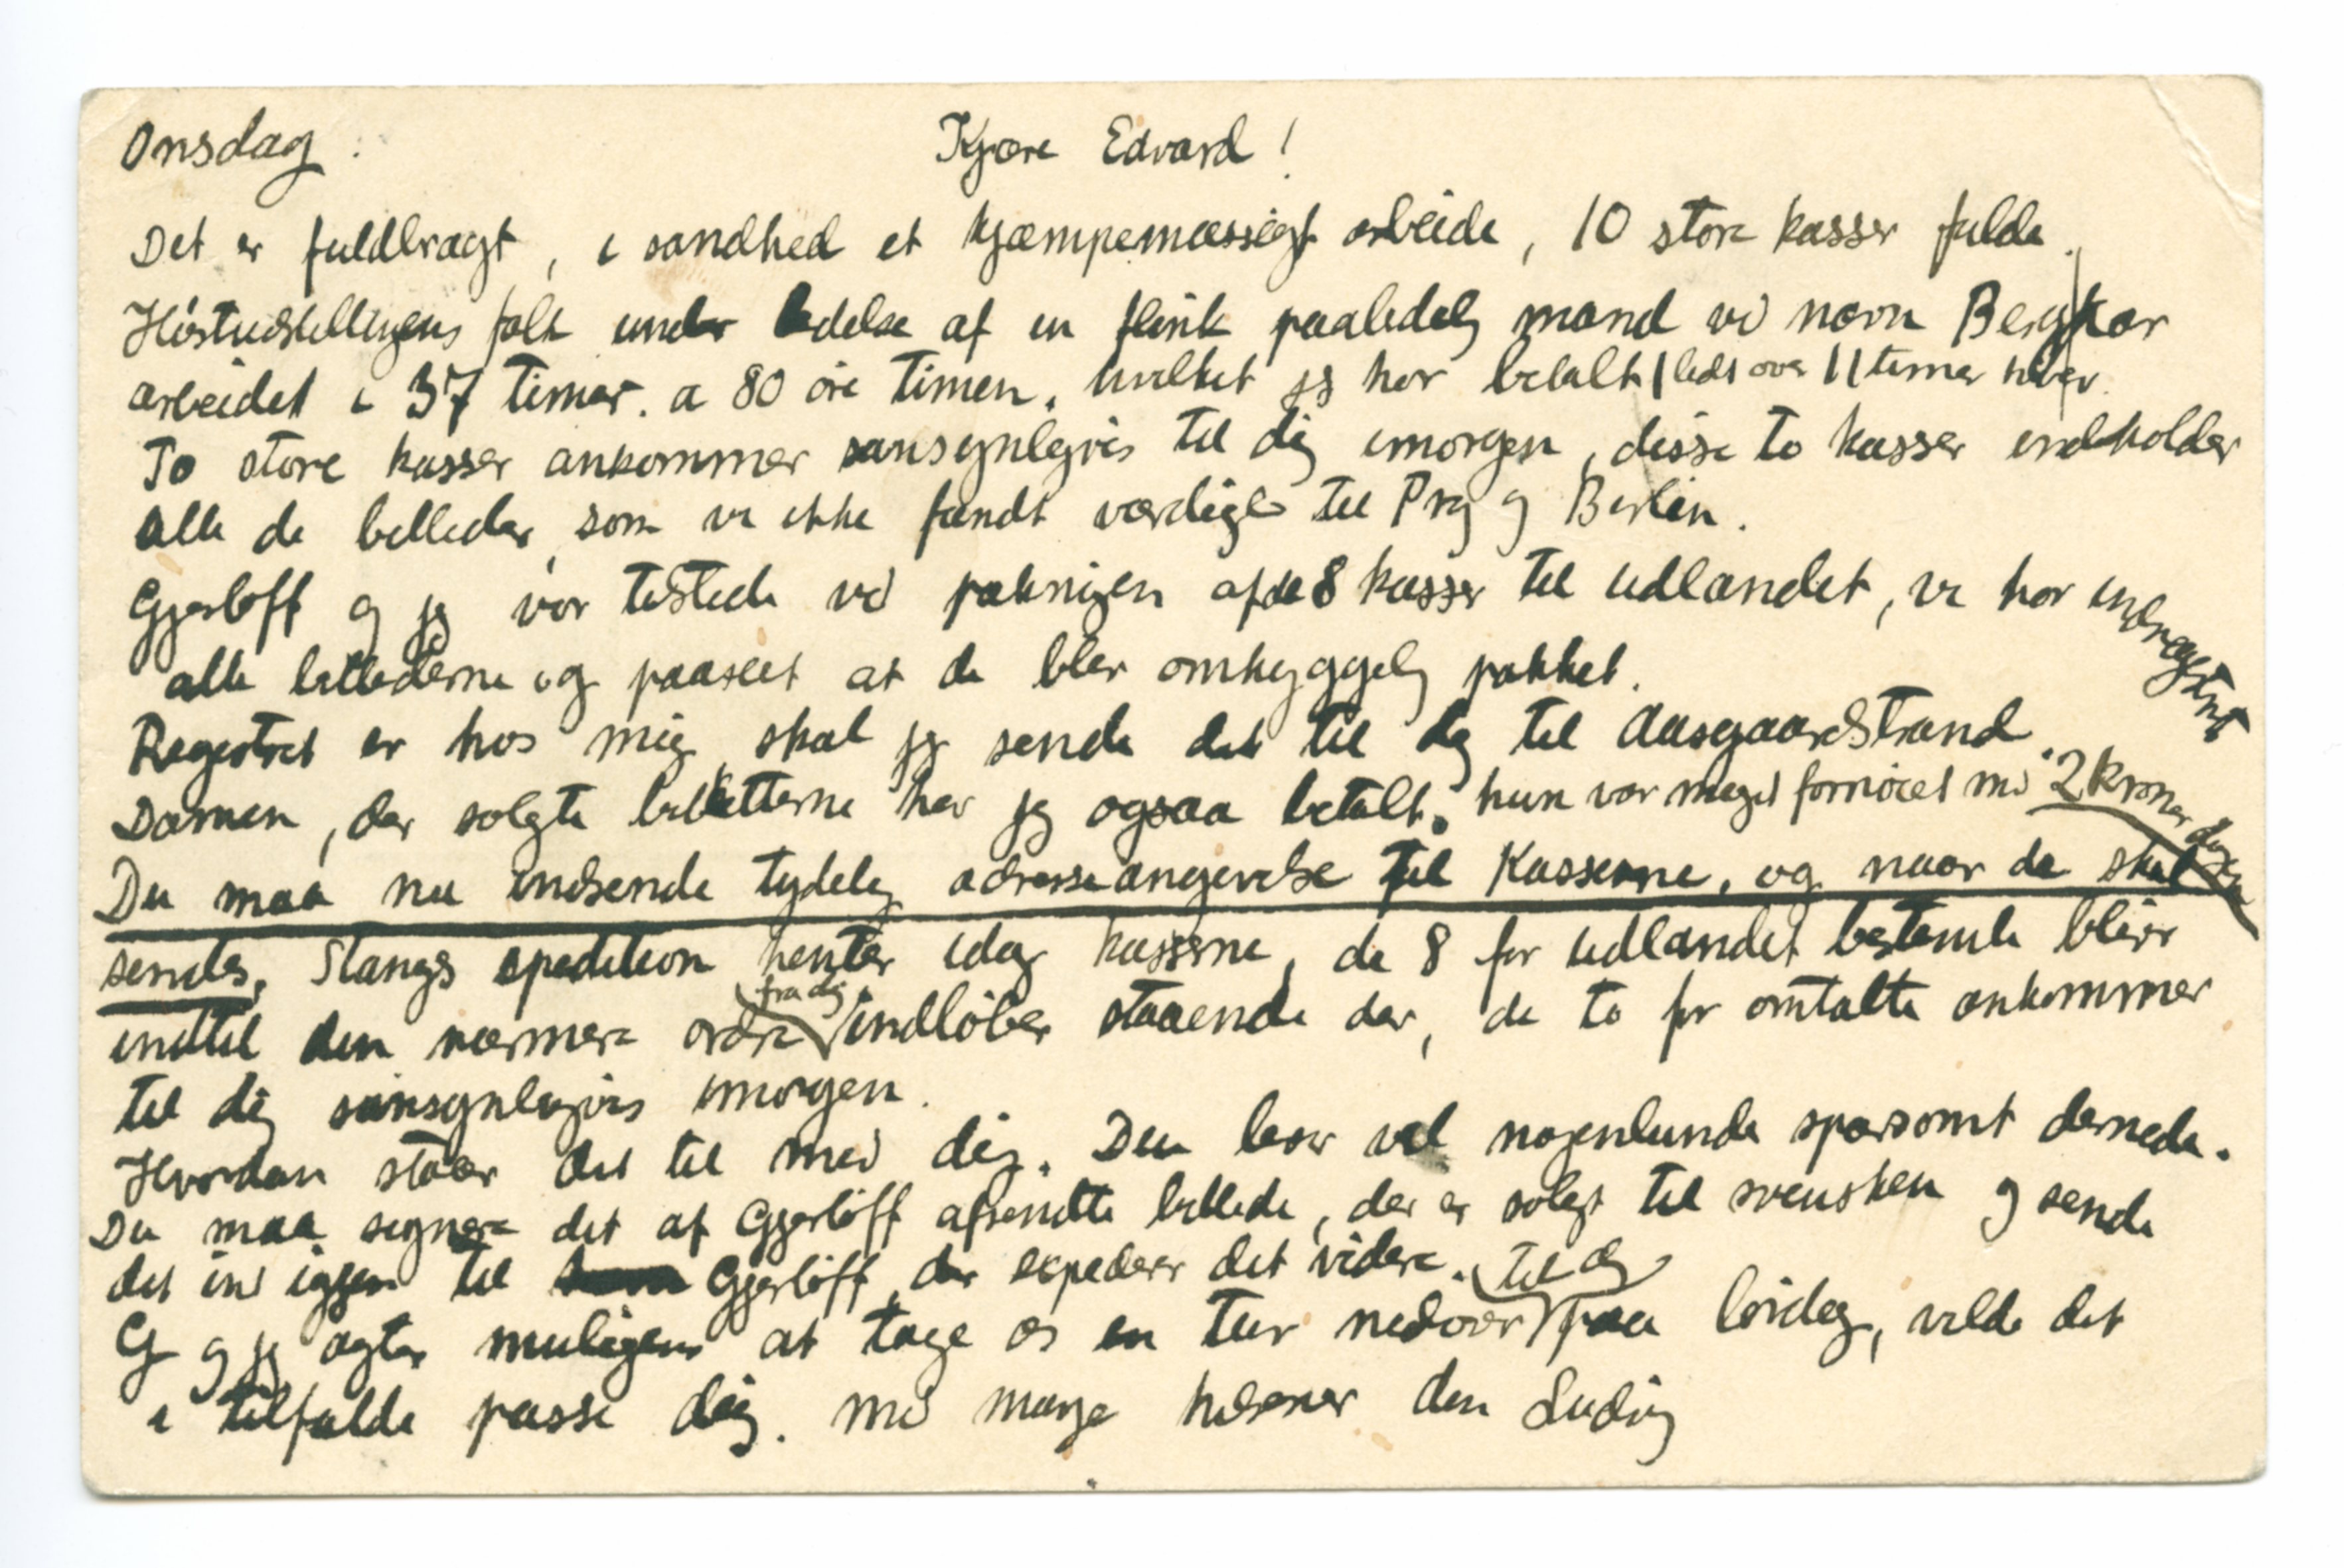 Onsdag. Kjære Edvard!
Det er fuldbragt, i sandhed et kjæmpemæssigt arbeide, 10 store kasser fulde.
Høstudstillingens folk under ledelse af en flink paalidelig mand ved navn Berg har
arbeidet i 37 timer. a 80 øre timen, hvilket jeg har betalt lidt over 11 timer hver.
To store kasser ankommer sansynligvis til dig imorgen, disse to kasser indholder
alle de billeder, som vi ikke fandt værdige til Prag og Berlin.
Gjerløff og jeg var tilstede ved pakningen af de 8 kasser til udlandet, vi har indregistrert
alle billederne og paaseet at de blev omhyggelig pakket.
Registret er hos mig, skal jeg sende det til dig til Aasgaardstrand.
Damen, der solgte billetterne har jeg ogsaa betalt, hun var meget fornøiet med 2 kroner dagen
Du maa nu indsende tydelig adresseangivelse til Kasserne, og naar de skal
sendes. Stangs spedition henter idag kasserne, de 8 for udlandet bestemte bliver
indtil den nærmere ordre fra dig indløber staaende der, de to før omtalte ankommer
til dig sansynligvis imorgen.
Hvordan staar det til med dig. Du lever vel nogenlunde sparsomt dernede.
Du maa signere det af Gjerløff afsendte billede, der er solgt til svensken og sende
det ind igjen til Gjerløff, der expederer det videre.
G og jeg agter muligens at tage os en tur nedover til dig paa lørdag, vilde det
i tilfælde passe dig. Med mange hilsener din Ludvig